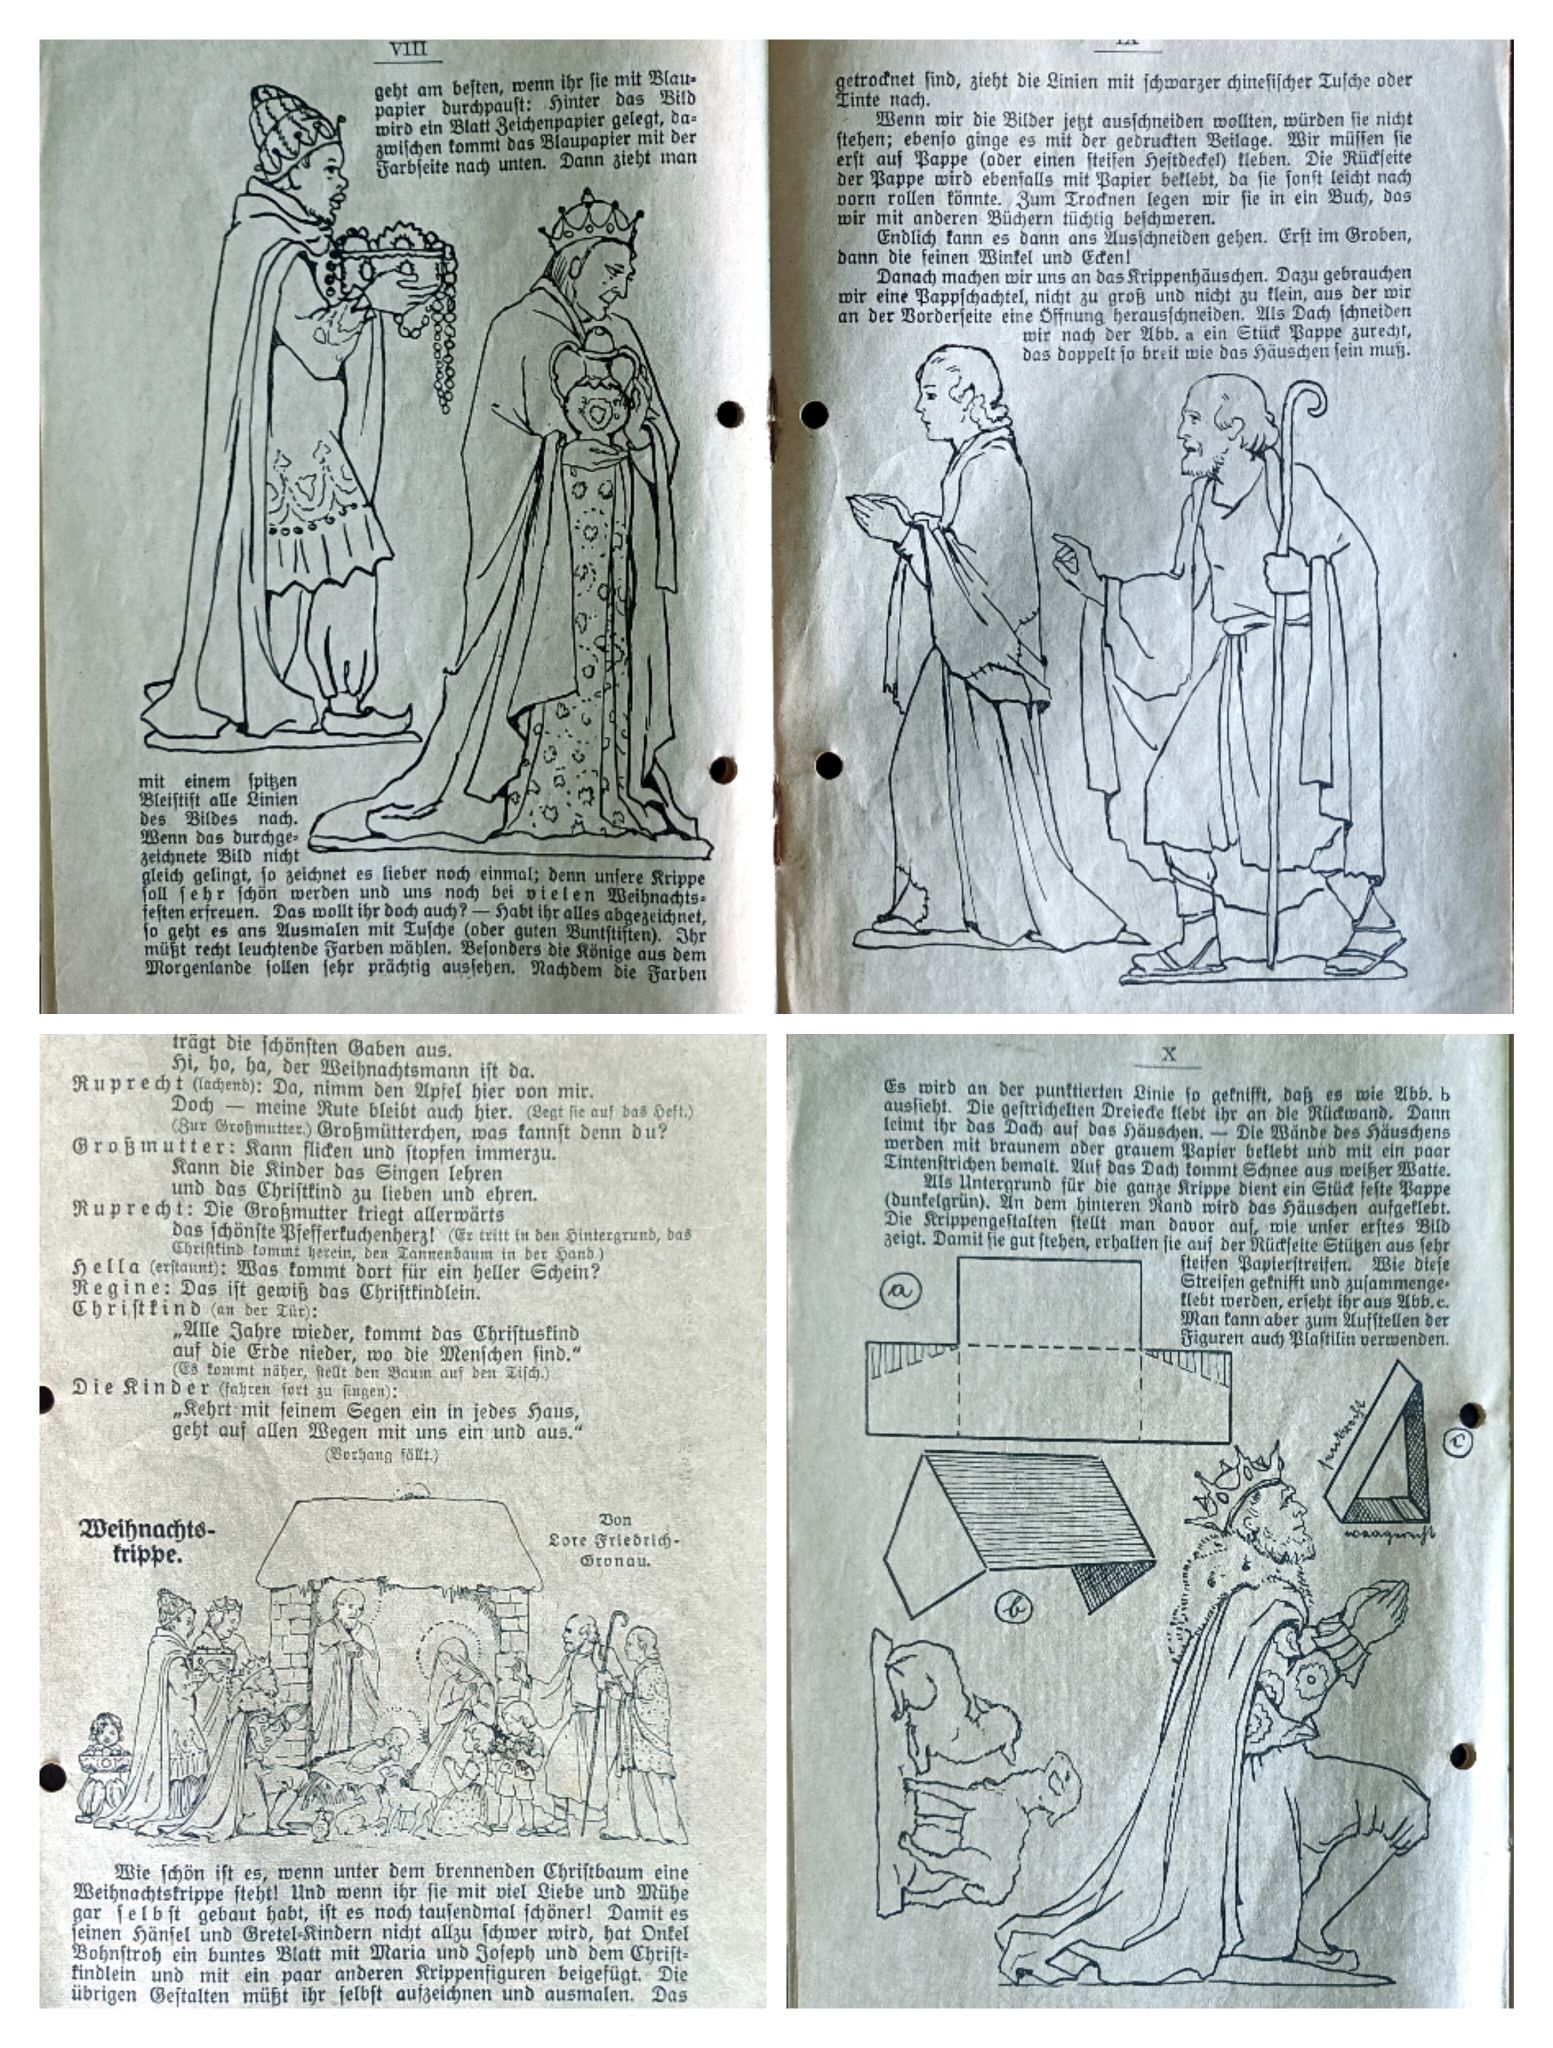 VIII
geht am besten, wenn ihr sie mit Blau-
papier durchpaust: Hinter das Bild
wird ein Blatt Zeichenpapier gelegt, da-
zwischen kommt das Blaupapier mit der
Farbseite nach unten. Dann zieht man
mit einem spitzen
Bleistift alle Linien
des Bildes nach.
Wenn das durchge-
zeichnete Bild nicht
gleich gelingt, so zeichnet es lieber noch einmal; denn unsere Krippe
soll sehr schön werden und uns noch bei vielen Weihnachts-
festen erfreuen. Das wollt ihr doch auch? — Habt ihr alles abgezeichnet,
so geht es ans Ausmalen mit Tusche (oder guten Buntstiften). Ihr
müßt recht leuchtende Farben wählen. Besonders die Könige aus dem
Morgenlande sollen sehr prächtig aussehen. Nachdem die Farben
IX
getrocknet sind, zieht die Linien mit schwarzer chinesischer Tusche oder
Tinte nach.
Wenn wir die Bilder jetzt ausschneiden wollten, würden sie nicht
stehen; ebenso ginge es mit der gedruckten Beilage. Wir müssen sie
erst auf Pappe (oder einen steifen Heftdeckel) kleben. Die Rückseite
der Pappe wird ebenfalls mit Papier beklebt, da sie sonst leicht nach
vorn rollen könnte. Zum Trocknen legen wir sie in ein Buch, das
wir mit anderen Büchern tüchtig beschweren.
Endlich kann es dann ans Ausschneiden gehen. Erst im Groben,
dann die feinen Winkel und Ecken!
Danach machen wir uns an das Krippenhäuschen. Dazu gebrauchen
wir eine Pappschachtel, nicht zu groß und nicht zu klein, aus der wir
an der Vorderseite eine Öffnung herausschneiden. Als Dach schneiden
wir nach der Abb. a ein Stück Pappe zurecht,
das doppelt so breit wie das Häuschen sein muß.
trägt die schönsten Gaben aus.
Hi, ho, ha, der Weihnachtsmann ist da.
Ruprecht (lachend): Da, nimm den Apfel hier von mir.
Doch — meine Rute bleibt auch hier. (Legt sie auf das Heft.)
(Zur Großmutter.) Großmütterchen, was kannst denn du?
Großmutter: Kann flicken und stopfen immerzu.
Kann die Kinder das Singen lehren
und das Christkind zu lieben und ehren.
Ruprecht: Die Großmutter kriegt allerwärts
das schönste Pfefferkuchenherz! (Er tritt in den Hintergrund, das
Christkind kommt herein, den Tannenbaum in der Hand.)
Hella (erstaunt): Was kommt dort für ein heller Schein?
Regine: Das ist gewiß das Christkindlein.
Christkind (an der Tür):
„Alle Jahre wieder, kommt das Christuskind
auf die Erde nieder, wo die Menschen sind.“
(Es kommt näher, stellt den Baum auf den Tisch.)
Die Kinder (fahren fort zu singen):
„Kehrt mit seinem Segen ein in jedes Haus,
geht auf allen Wegen mit uns ein und aus.“
(Vorhang fällt.)
Weihnachts-
krippe.
Von
Lore Friedrich-
Gronau.
Wie schön ist es, wenn unter dem brennenden Christbaum eine
Weihnachtskrippe steht! Und wenn ihr sie mit viel Liebe und Mühe
gar selbst gebaut habt, ist es noch tausendmal schöner! Damit es
seinen Hänsel und Gretel-Kindern nicht allzu schwer wird, hat Onkel
Bohnstroh ein buntes Blatt mit Maria und Joseph und dem Christ-
kindlein und mit ein paar anderen Krippenfiguren beigefügt. Die
übrigen Gestalten müßt ihr selbst aufzeichnen und ausmalen. Das
X
Es wird an der punktierten Linie so geknifft, daß es wie Abb. b
aussieht. Die gestrichelten Dreiecke klebt ihr an die Rückwand. Dann
leimt ihr das Dach auf das Häuschen. — Die Wände des Häuschens
werden mit braunem oder grauem Papier beklebt und mit ein paar
Tintenstrichen bemalt. Auf das Dach kommt Schnee aus weißer Watte.
Als Untergrund für die ganze Krippe dient ein Stück feste Pappe
(dunkelgrün). An dem hinteren Rand wird das Häuschen aufgeklebt.
Die Krippengestalten stellt man davor auf, wie unser erstes Bild
zeigt. Damit sie gut stehen, erhalten sie auf der Rückseite Stützen aus sehr
steifen Papierstreifen. Wie diese
Streifen geknifft und zusammenge-
klebt werden, erseht ihr aus Abb. c.
Man kann aber zum Aufstellen der
Figuren auch Plastilin verwenden.
a
senkrecht
c
waagerecht
b